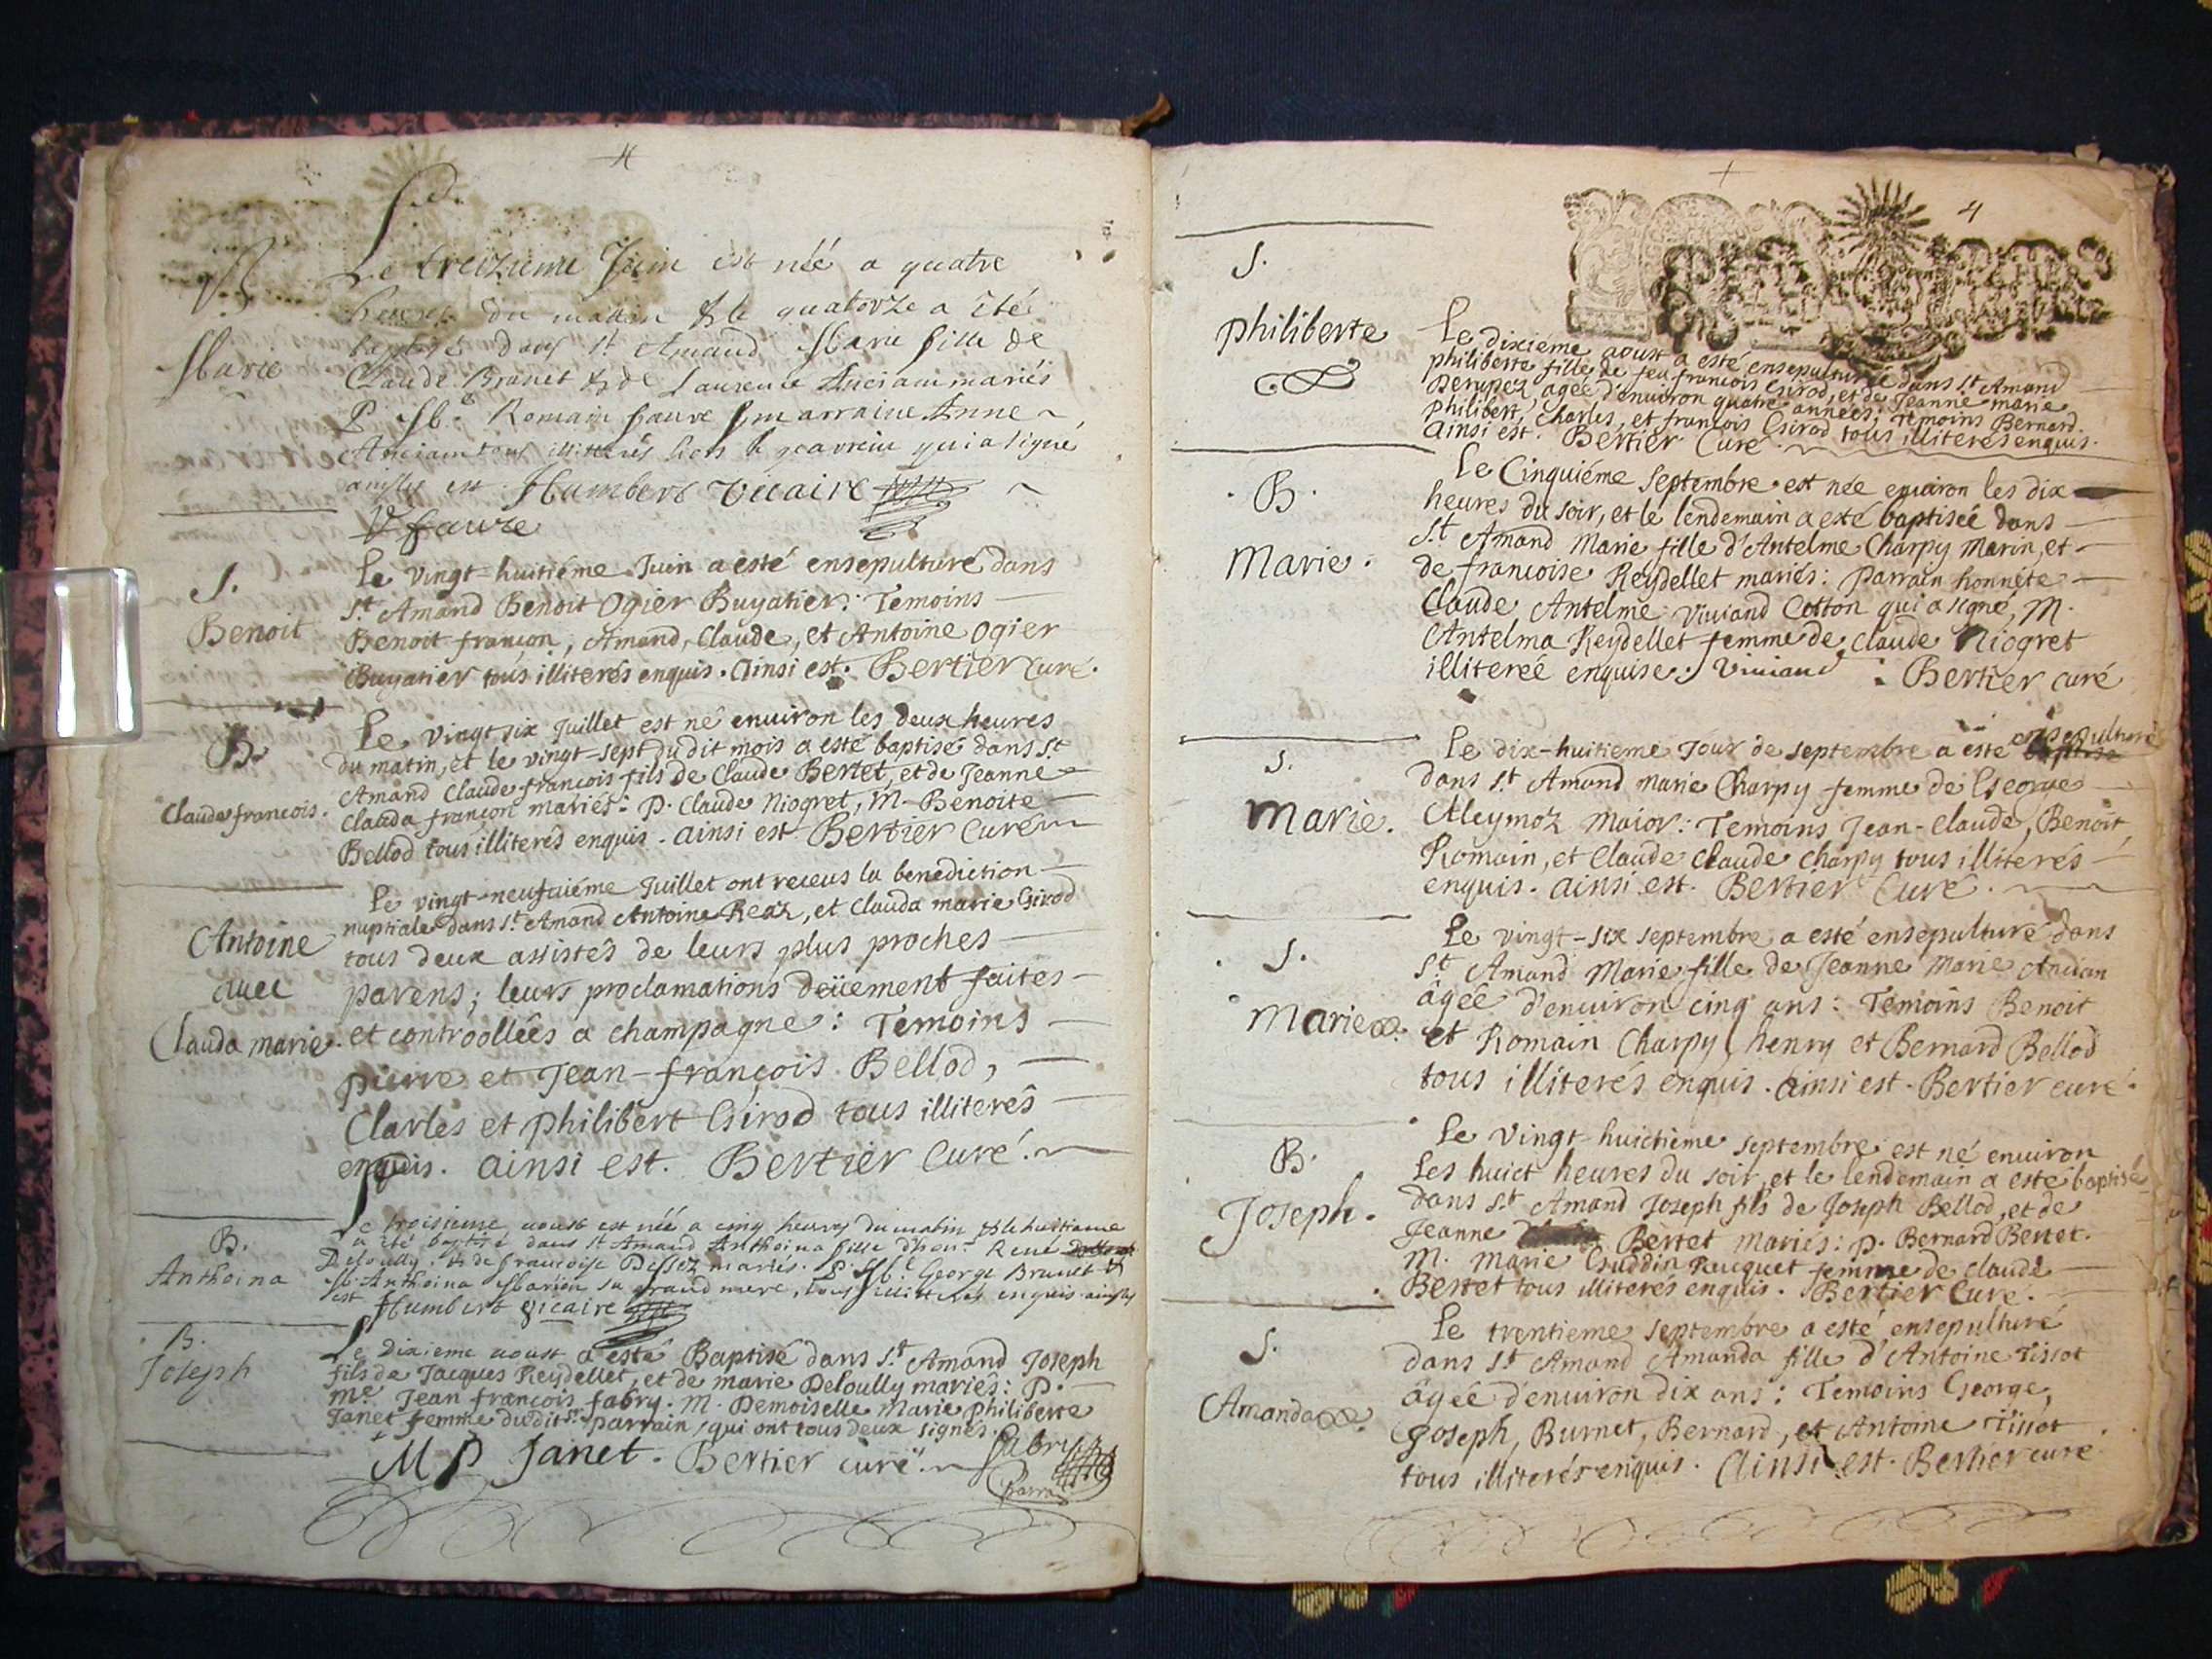 B
Marie
Le treizieme Juin est néé a quatre
heures du matin & le quatorze a été
baptisé dans St Amand Marie fille de
Claude Brunet & de Laurence Anciam mariés
P. Romain faure Marraine Anne
Anciam tous illiterés hors le parrein qui a signé
ainsy est Humbert vicaire
faure
S.
Benoit
Le vingt-huitiéme Juin a esté ensepulturé dans
St Amand Benoit Ogier Buyatier: Temoins
Benoit françon, Amand, Claude, et Antoine Ogier
Buyatier tous illiterés enquis. Ainsi est. Bertier Curé.
B.
Claude françois.
Le vingt six Juillet est né enuiron les deux heures
du matin, et le vingt-sept dudit mois a esté baptisé dans St
Amand Claude françois fils de Claude Bertet, et de Jeanne
Clauda françon mariés. P. Claude Niogret, M. Benoite
Bellod tous illiterés enquis. ainsi est Bertier Curé
Antoine
auec
Clauda marie.
Le vingt-neufuiéme Juillet ont receus la benediction
nuptiale dans St Amand Antoine Reaz, et Clauda marie Girod
tous deux assistés de leurs plus proches
parens; leurs proclamations deüement faites
et controollées a champagne: Temoins
pierre et Jean-françois Bellod,
Charles et philibert Girod tous illiterés
enquis. ainsi est. Bertier Curé.
B.
Anthoina
Le troisieme aoust est néé a cinq heures du matin & le huitieme
a été baptisé dans St Amand Anthoina fille d'hon. René
Deloully & de françoise Dessez mariés. P. George Brunet &
M. Anthoina sa grand mere, tous illiteres enquis ainsy
est Humbert vicaire
B.
Joseph
Le Dixieme aoust a esté Baptisé dans St Amand Joseph
fils de Jacques Reydellet, et de marie Deloully mariés: P.
me Jean françois fabry. M. Demoiselle Marie philiberte
Janet femme dudit sr parrain, qui ont tous deux signés.
M P Janet. Bertier curé. fabry
parrain
4
S.
philiberte
Le dixiéme aoust a esté ensepulturéé dans St Amand
philiberte fille de feu françois Girod, et de Jeanne marie
agée d'enuiron quatre années; Temoins Bernard
Philibert, Charles, et françois Girod tous illiterés enquis.
Ainsi est. Bertier Curé
B.
Marie.
Le Cinquiéme Septembre est née enuiron les dix
heures du soir, et le lendemain a esté baptiséé dans
St Amand Marie fille d'Antelme Charpy Marin, et
de françoise Reydellet mariés: parrain honnéte
Claude Antelme Viuiand Cotton qui a signé, M.
Antelma Reydellet femme de Claude Niogret
illiteréé enquise. Viuiand. Bertier curé
S.
marie.
Le dix-huitieme Jour de septembre a esté ensepulturé
dans St Amand Marie Charpy femme de George
Aleymoz Maior: Temoins Jean-Claude, Benoit,
Romain, et Claude Claude Charpy tous illiterés
enquis. ainsi est. Bertier Curé.
S.
Marie
Le vingt-six septembre a esté ensepulturé dans
St Amand Marie fille de Jeanne Marie Ancian
âgéé d'enuiron cinq ans: Temoins Benoit
et Romain Charpy, henry et Bernard Bellod
tous illiterés enquis. Ainsi est. Bertier curé.
B.
Joseph.
Le Vingt-huictiéme septembre est né enuiron
Les huict heures du soir, et le lendemain a esté baptisé
dans St Amand Joseph fils de Joseph Bellod, et de
Jeanne Bertet mariés: p. Bernard Bertet.
M. Marie Guddin Rucquet femme de Claude
Bertet tous illiterés enquis. Bertier Curé.
S.
Amanda
Le trentieme septembre a esté ensepulturé
dans St Amand Amanda fille d'Antoine Tissot
âgéé d'enuiron dix ans: Temoins George,
Joseph, Burnet, Bernard, et Antoine Tissot
tous illiterés enquis. Ainsi est. Bertier curé